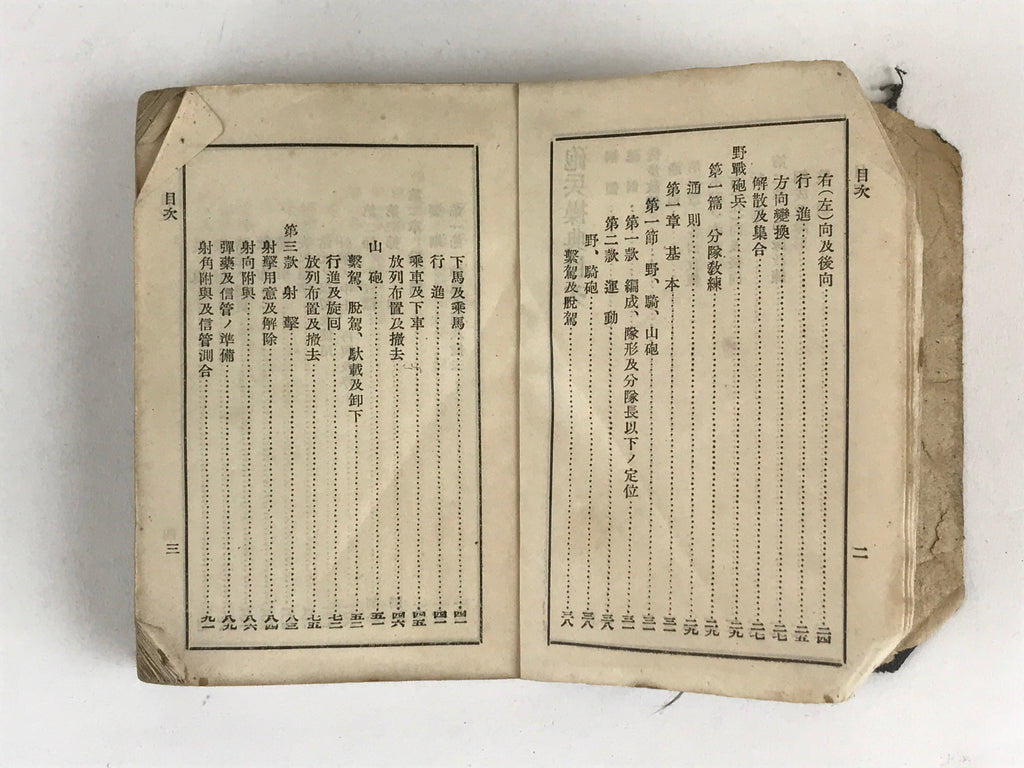 目次
右(左)向及後向……二四
行進……二五
方向變換……二七
解散及集合……二七
野戰砲兵……二九
第一篇 分隊敎練……二九
通則……二九
第一章 基本……三一
第一節 野、騎、山砲……三一
第一款 編成、隊形及分隊長以下ノ定位……三一
第二款 運動……三八
野、騎砲……三八
繫駕及脫駕……三八
二
下馬及乘馬……四一
行進……四一
乘車及下車……四五
放列布置及撤去……四六
山砲……五一
繫駕、脫駕、馱載及卸下……五二
行進及旋回……七二
放列布置及撤去……七五
第三款 射擊……八三
射擊用意及解除……八四
射向附與……八六
彈藥及信管ノ準備……八九
射角附與及信管測合……九一
目次
三